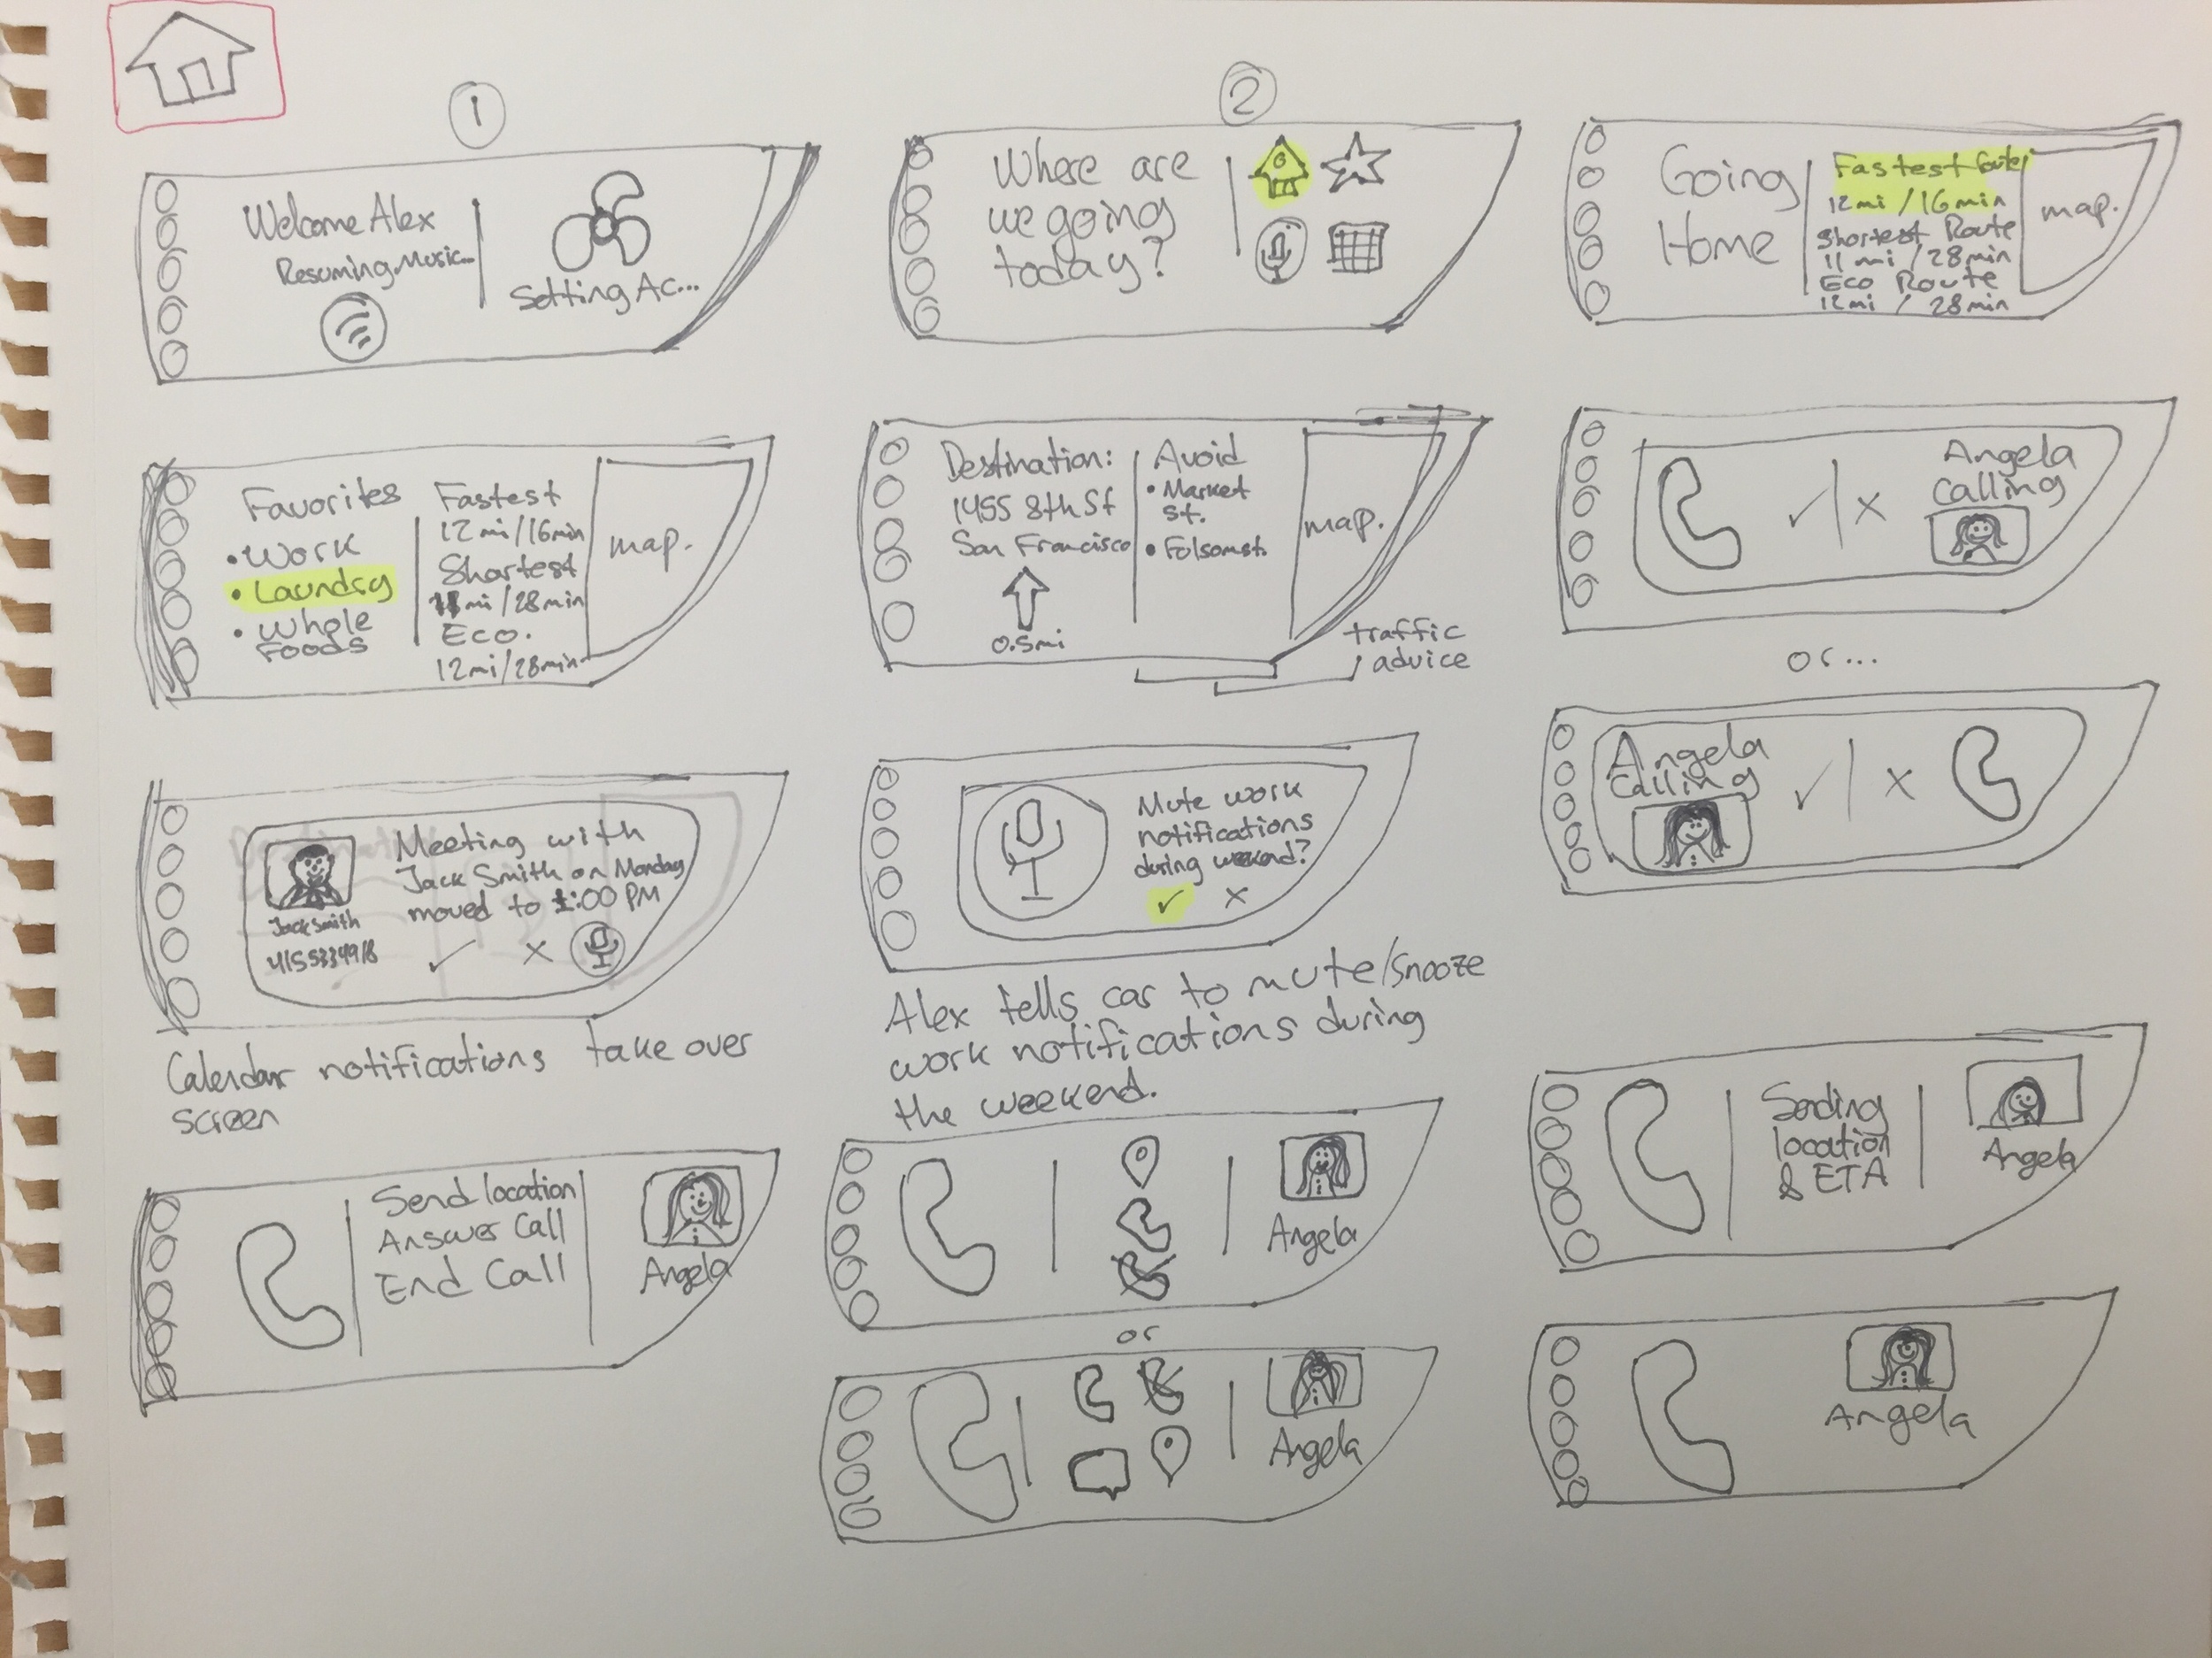 1
Welcome Alex
Resuming Music...
Setting Ac...
2
Where are
we going
today?
Going
Home
Fastest Route
12mi / 16min
Shortest Route
11 mi / 28min
Eco Route
12mi / 28min
Favorites
• Work
• Laundry
• Whole
Foods
Fastest
12 mi/16min
Shortest
11mi/28min
Eco.
12mi/28min
map.
Destination:
1455 8th St
San Francisco
0.5mi
Avoid
• Market
St.
• Folsom st.
map.
traffic
advice
map.
Angela
Calling
or...
Angela
Calling
Jack Smith
4155334918
Meeting with
Jack Smith on Monday
moved to 1:00 PM
Calendar notifications take over
screen
Mute work
notifications
during weekend?
Alex tells car to mute/snooze
work notifications during
the weekend.
Send location
Answer Call
End Call
Angela
Angela
or
Angela
Sending
location
& ETA
Angela
Angela